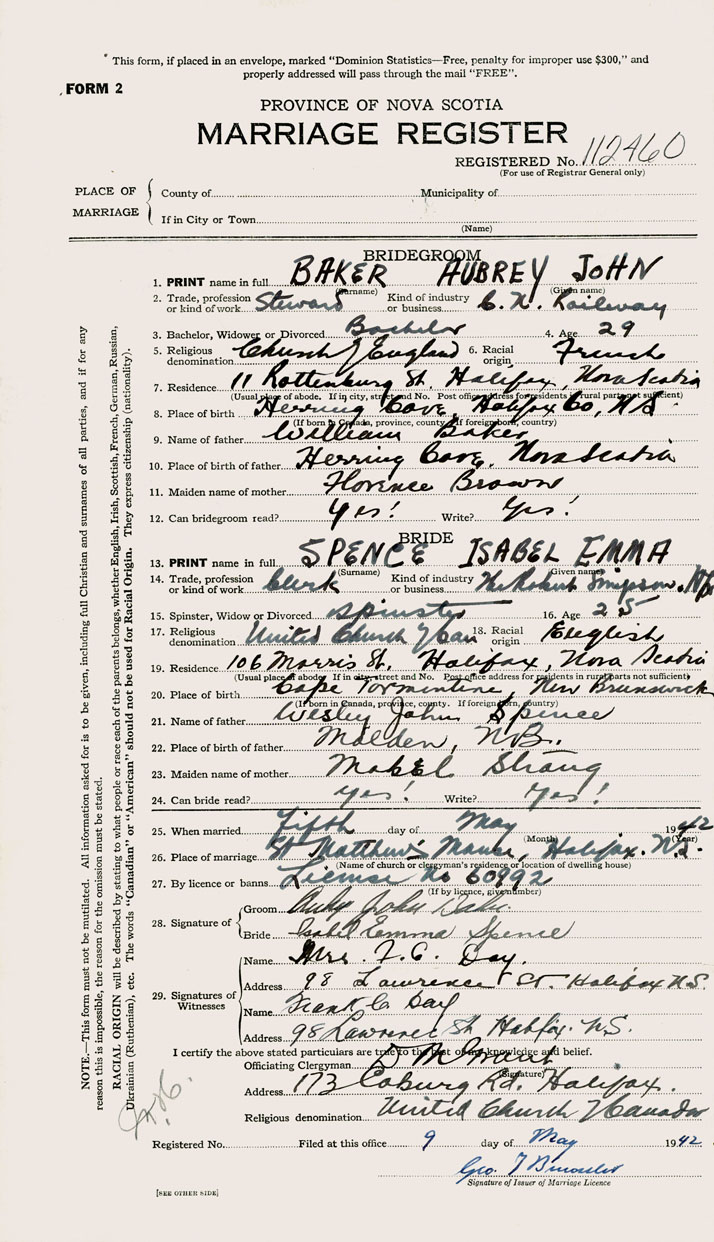 * This form, if placed in an envelope, marked "Dominion Statistics—Free, penalty for improper use $300," and
properly addressed will pass through the mail "FREE".
FORM 2
PROVINCE OF NOVA SCOTIA
MARRIAGE REGISTER
REGISTERED No. 112460
(For use of Registrar General only)
PLACE OF MARRIAGE
County of Municipality of
If in City or Town
(Name)
BRIDEGROOM
1. PRINT name in full BAKER AUBREY JOHN
(Surname) (Given name)
2. Trade, profession or kind of work Steward Kind of industry or business C. N. Railway
3. Bachelor, Widower or Divorced Bachelor 4. Age 29
5. Religious denomination Church of England 6. Racial origin French
7. Residence 11 Rottenburg St. Halifax, Nova Scotia
(Usual place of abode. If in city, street and No. Post office address for residents in rural parts not sufficient)
8. Place of birth Herring Cove, Halifax Co, N.S.
(If born in Canada, province, county. If foreign born, country)
9. Name of father William Baker
10. Place of birth of father Herring Cove, Nova Scotia
11. Maiden name of mother Florence Brown
12. Can bridegroom read? Yes! Write? Yes!
BRIDE
13. PRINT name in full SPENCE ISABEL EMMA
(Surname) (Given name)
14. Trade, profession or kind of work Clerk Kind of industry or business The Robert Simpson
15. Spinster, Widow or Divorced Spinster 16. Age 25
17. Religious denomination United Church of Can 18. Racial origin English
19. Residence 106 Morris St. Halifax, Nova Scotia
(Usual place of abode. If in city, street and No. Post office address for residents in rural parts not sufficient)
20. Place of birth Cape Tormentine, New Brunswick
(If born in Canada, province, county. If foreign born, country)
21. Name of father Wesley John Spence
22. Place of birth of father Malden, N.B.
23. Maiden name of mother Mabel Strang
24. Can bride read? yes! Write? Yes!
25. When married Fifth day of May 1942
(Month) (Year)
26. Place of marriage St Matthew's Manse, Halifax. N.S.
(Name of church or clergyman's residence or location of dwelling house)
27. By licence or banns License No 60992
(If by licence, give number)
28. Signature of
Groom John Baker
Bride Isabel Emma Spence
29. Signatures of Witnesses
Name Mrs. F. C. Day.
Address 98 Lawrence St. Halifax N.S.
Name Frank C. Day
Address 98 Lawrence St. Halifax. N.S.
I certify the above stated particulars are true to the best of my knowledge and belief.
Officiating Clergyman D M Grant
(Signature)
Address 173 Coburg Rd. Halifax.
Religious denomination United Church of Canada
Registered No. Filed at this office 9 day of May 1942
Geo.
Signature of Issuer of Marriage Licence
[SEE OTHER SIDE]
NOTE.—This form must not be mutilated. All information asked for is to be given, including full Christian and surnames of all parties, and if for any
reason this is impossible, the reason for the omission must be stated.
RACIAL ORIGIN will be described by stating to what people or race each of the parents belongs, whether English, Irish, Scottish, French, German, Russian,
Ukrainian (Ruthenian), etc. The words "Canadian" or "American" should not be used for Racial Origin. They express citizenship (nationality).